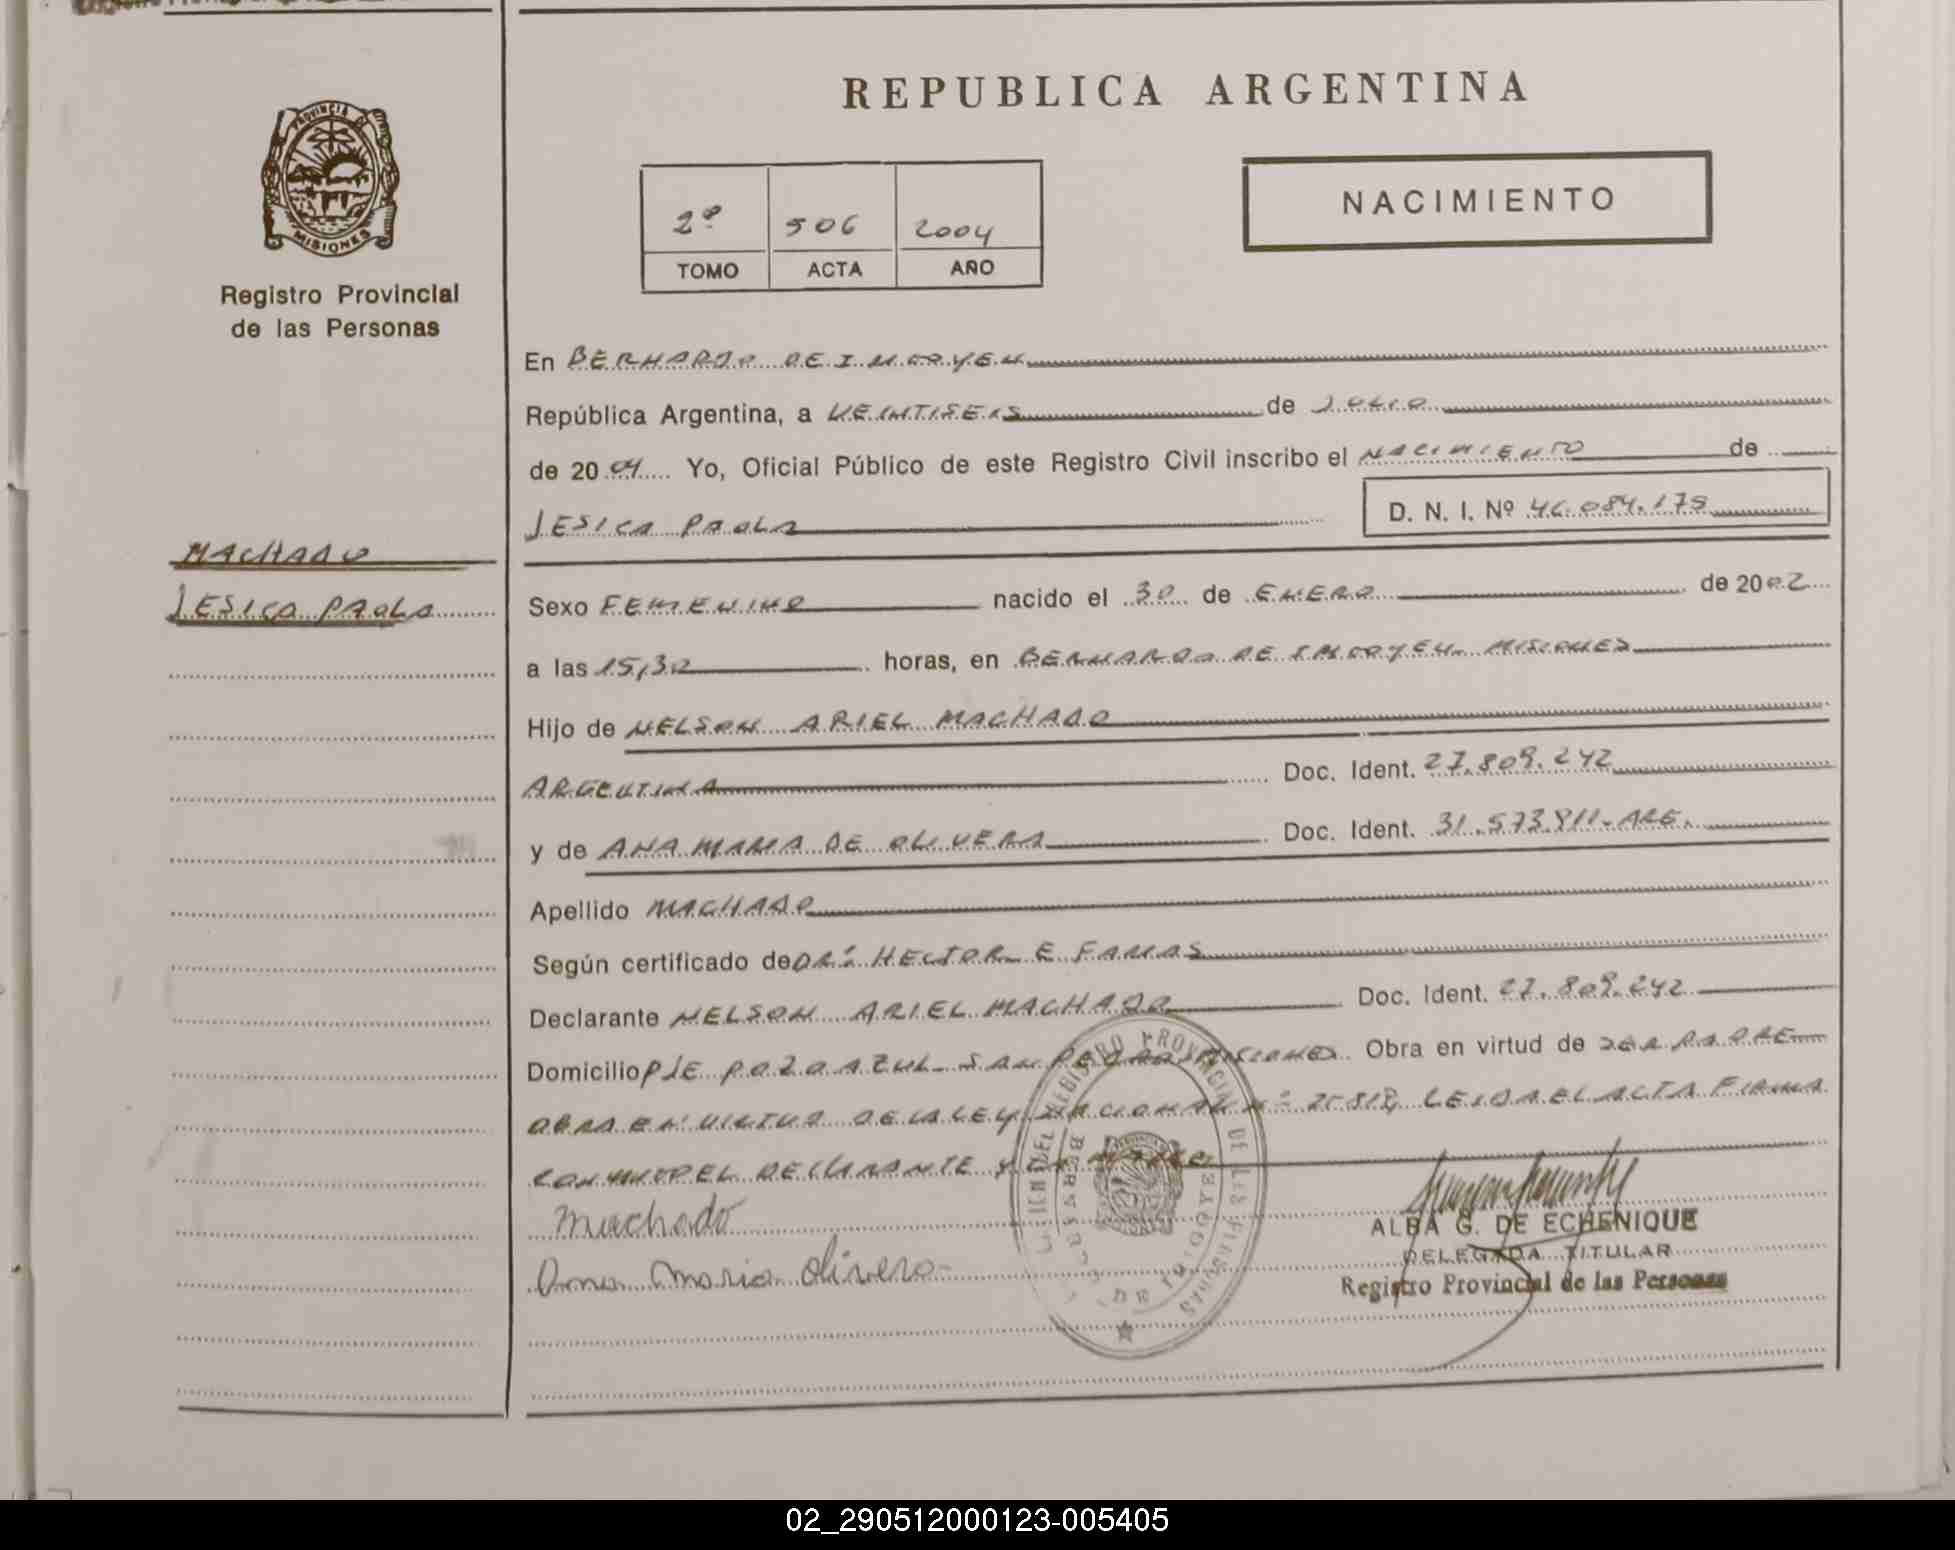 REPUBLICA ARGENTINA
PROVINCIA DE
MISIONES
Registro Provincial
de las Personas
2º 506 2004
TOMO ACTA AÑO
NACIMIENTO
En BERNARDO DE IRIGOYEN
República Argentina, a VEINTISEIS de JULIO
de 2004 Yo, Oficial Público de este Registro Civil inscribo el NACIMIENTO de
JESICA PAOLA D. N. I. Nº 46.084.179
MACHADO
JESICA PAOLA
Sexo FEMENINO nacido el 30 de ENERO de 2002
a las 15,30 horas, en BERNARDO DE IRIGOYEN. MISIONES
Hijo de NELSON ARIEL MACHADO
ARGENTINA Doc. Ident. 27.809.242
y de ANA MARIA DE OLIVERA Doc. Ident. 31.573.811-ARG.
Apellido MACHADO
Según certificado de DR. HECTOR E FARIAS
Declarante NELSON ARIEL MACHADO Doc. Ident. 27.809.242
Domicilio PJE POZO AZUL - SAN PEDRO MISIONES Obra en virtud de SER PADRE
OBRA EN VIRTUD DE LA LEY NACIONAL Nº 25818, LEIDA EL ACTA FIRMA
CONMIGO EL DECLARANTE Y LA MADRE
Machado
Ana Maria Olivera
ALBA G. DE ECHENIQUE
DELEGADA TITULAR
Registro Provincial de las Personas
02_290512000123-005405